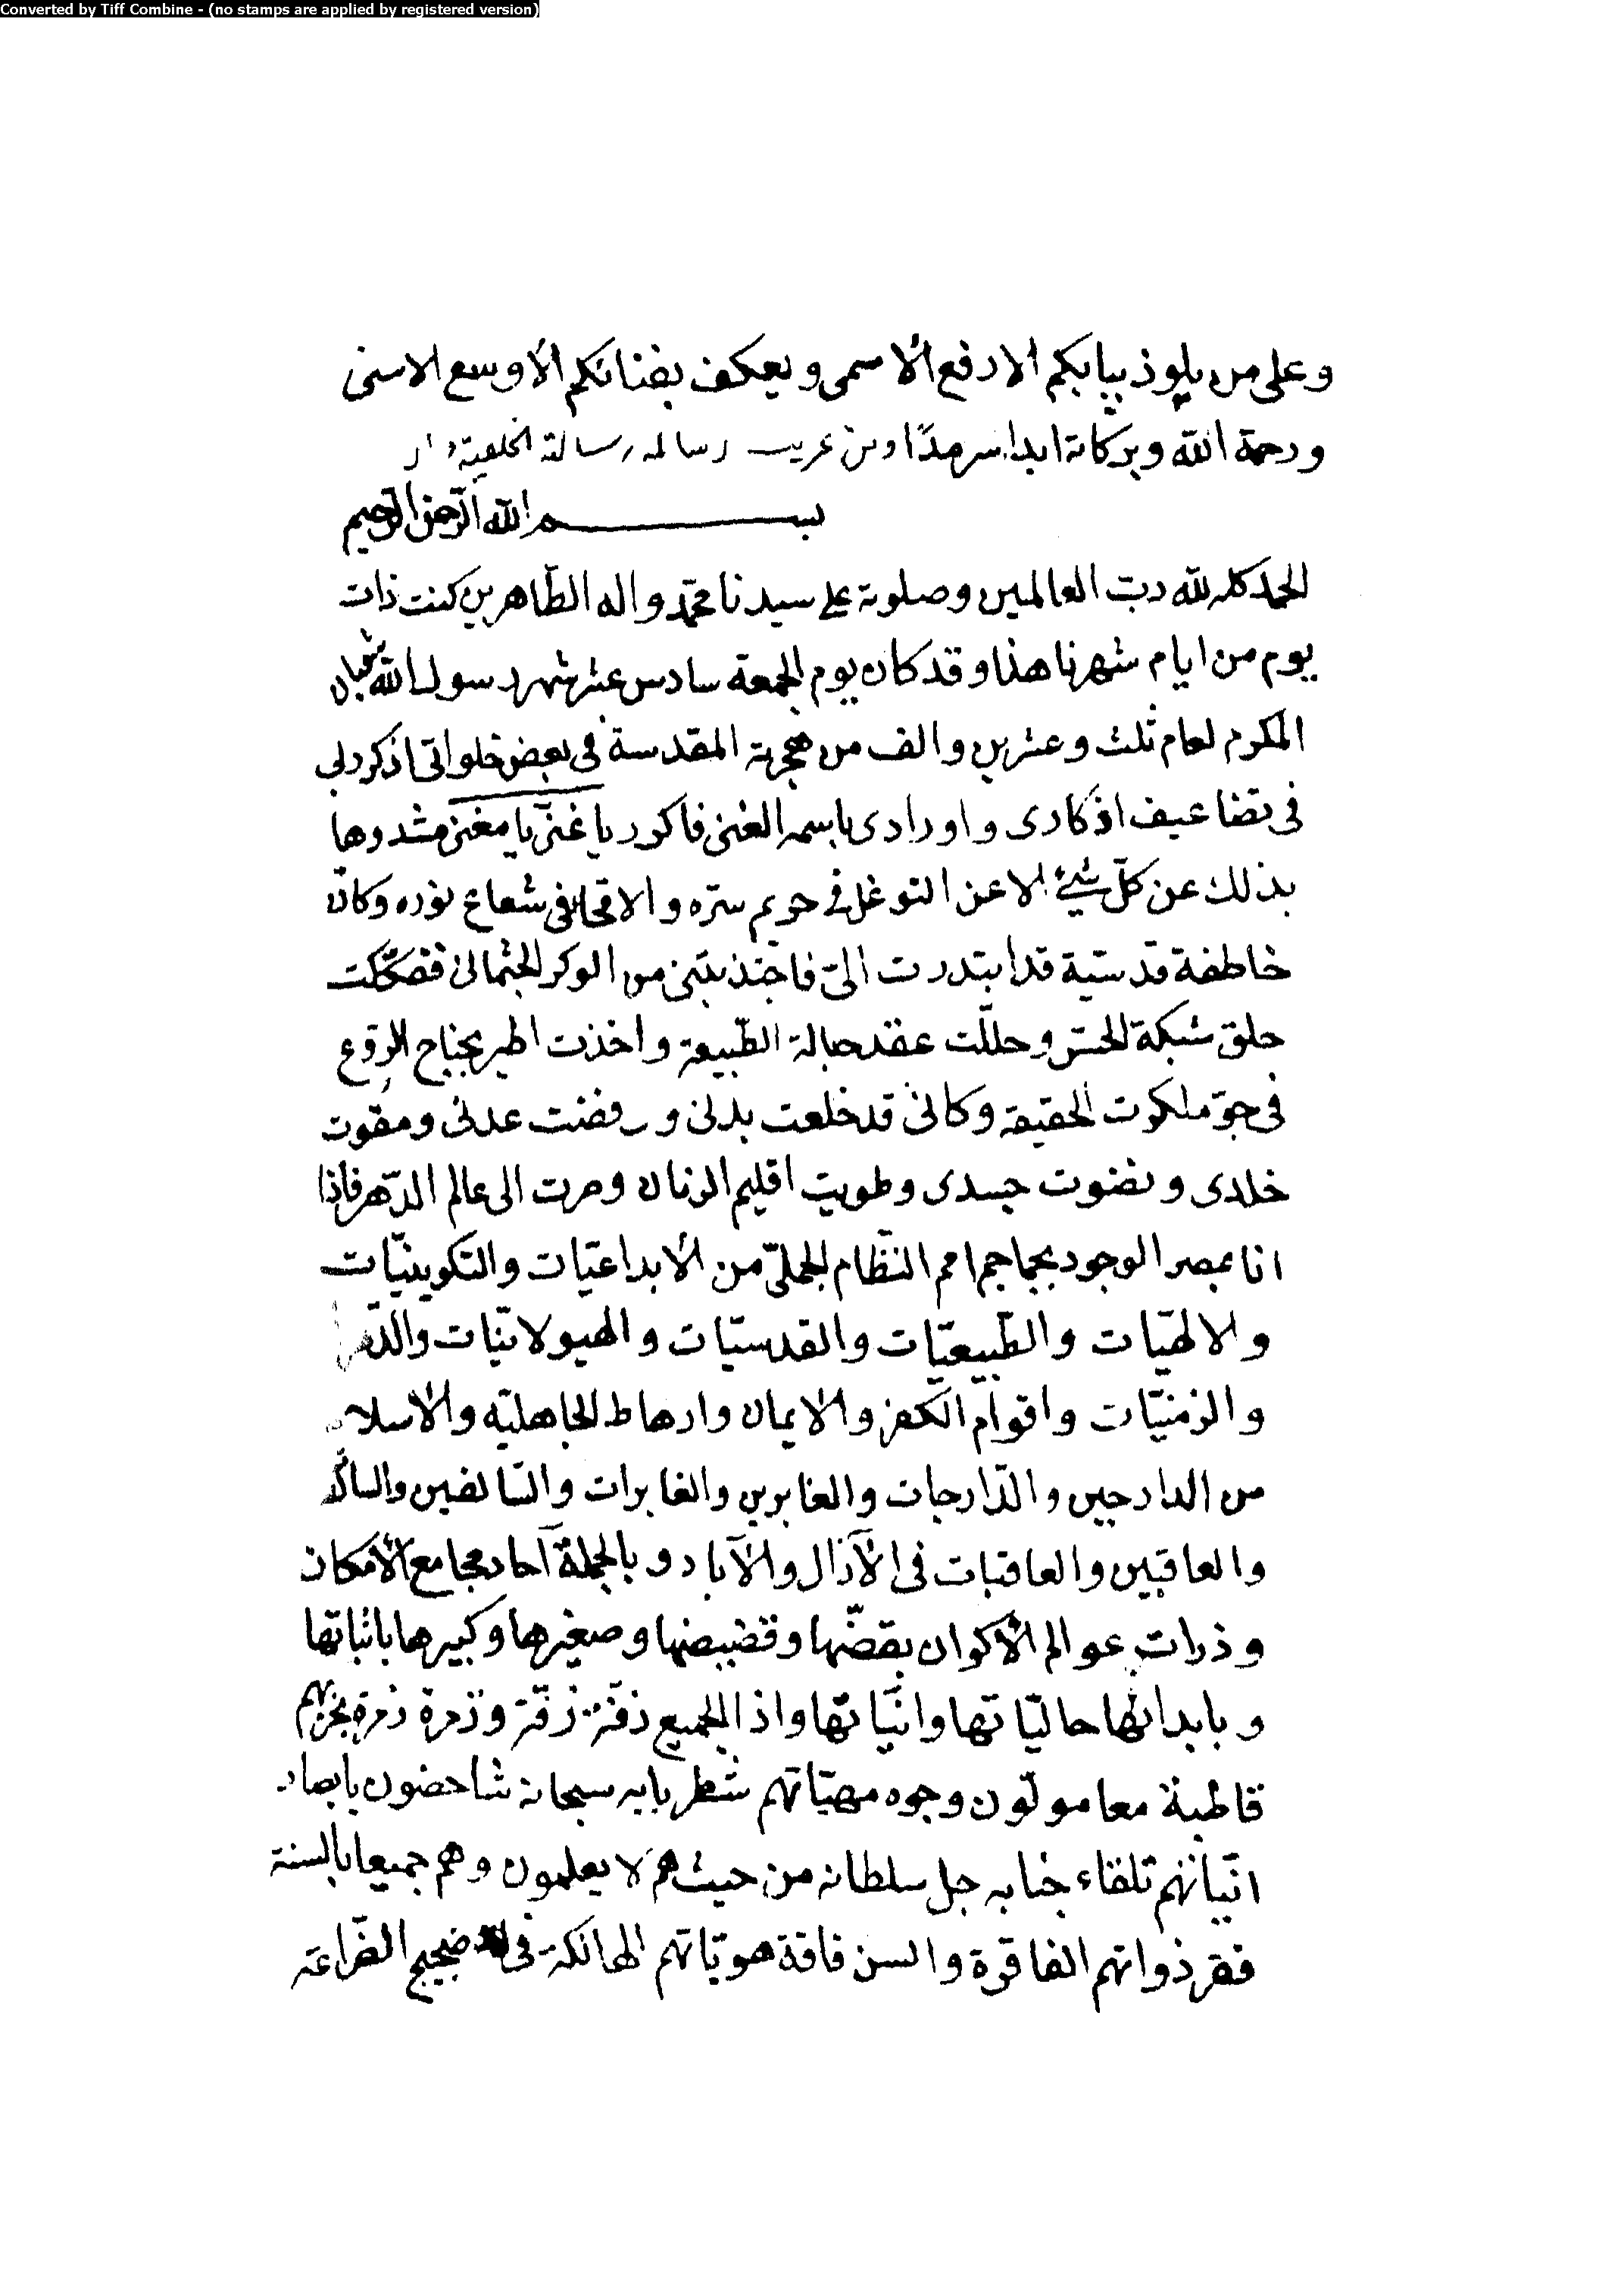 Converted by Tiff Combine - (no stamps are applied by registered version)
وعلى من يلوذ ببابكم الارفع الاسمى ويعكف بفنائكم الاوسع الاسنى
ورحمة الله وبركاته ابدا سرمدًا ومن غريب رسالة الخلعية
بسم الله الرحمن الرحيم
الحمد كله لله رب العالمين وصلوته على سيدنا محمد واله الطّاهرين كنت ذات
يوم من ايام شهرنا هذا وقد كان يوم الجمعة سادس عشر شهر رسول الله شعبان
المكرم لعام ثلث وعشرين والف من هجرته المقدسة فى بعض خلواتى اذكر ربى
فى تضاعيف اذكارى واورادى باسمه الغنى فاكرر يا غنىّ يا مغنى مشدوها
بذلك عن كلّ شىء الا عن التوغل فى حريم سرّه والامحاء فى شعاع نوره وكانّ
خاطفة قدسّية قد ابتدرت الىّ فاجتذبتنى من الوكر الجثمانى ففككت
حلق شبكة الحسّ وحللّت عقد حبالة الطّبيعة واخذت اطير بجناح الروع
فى جوّ ملكوت الحقيقة وكانى قد خلعت بدنى ورفضت عدنى ومقوت
خلدى ونضوت جسدى وطويت اقليم الزمان وصرت الى عالم الدّهر فاذا
انا بمصر الوجود بجماجم امم النّظام الجملىّ من الابداعيّات والتكوينيّات
والالهيّات والطّبيعيّات والقدسيّات والهيولانيّات والدّهريّات
والزمنيّات واقوام الكفر والايمان وارهاط الجاهليّه والاسلام
من الدارجين والدّارجات والغابرين والغابرات والسّالفين والسالفات
والعاقبين والعاقبات فى الآزال والآباد وبالجملة آحاد مجامع الامكان
وذرات عوالم الاكوان بقضّها وقضيضها وصغيرها وكبيرها باثباتها
وبابدانها حاليّاتها وانيّاتها واذا الجميع زفّة زفّة وزمرة زمرة بحزبهم
قاطبة معا مولّون وجوه مهيّاتهم شطر بابه سبحانه شاخصون بابصار
انيّاتهم تلقاء جنابه جل سلطانه من حيث هم لا يعلمون وهم جميعا بالسنة
فقر ذواتهم الفاقرة والسن فاقة هويّاتهم الهالكة فى ضجيج الضّراعة